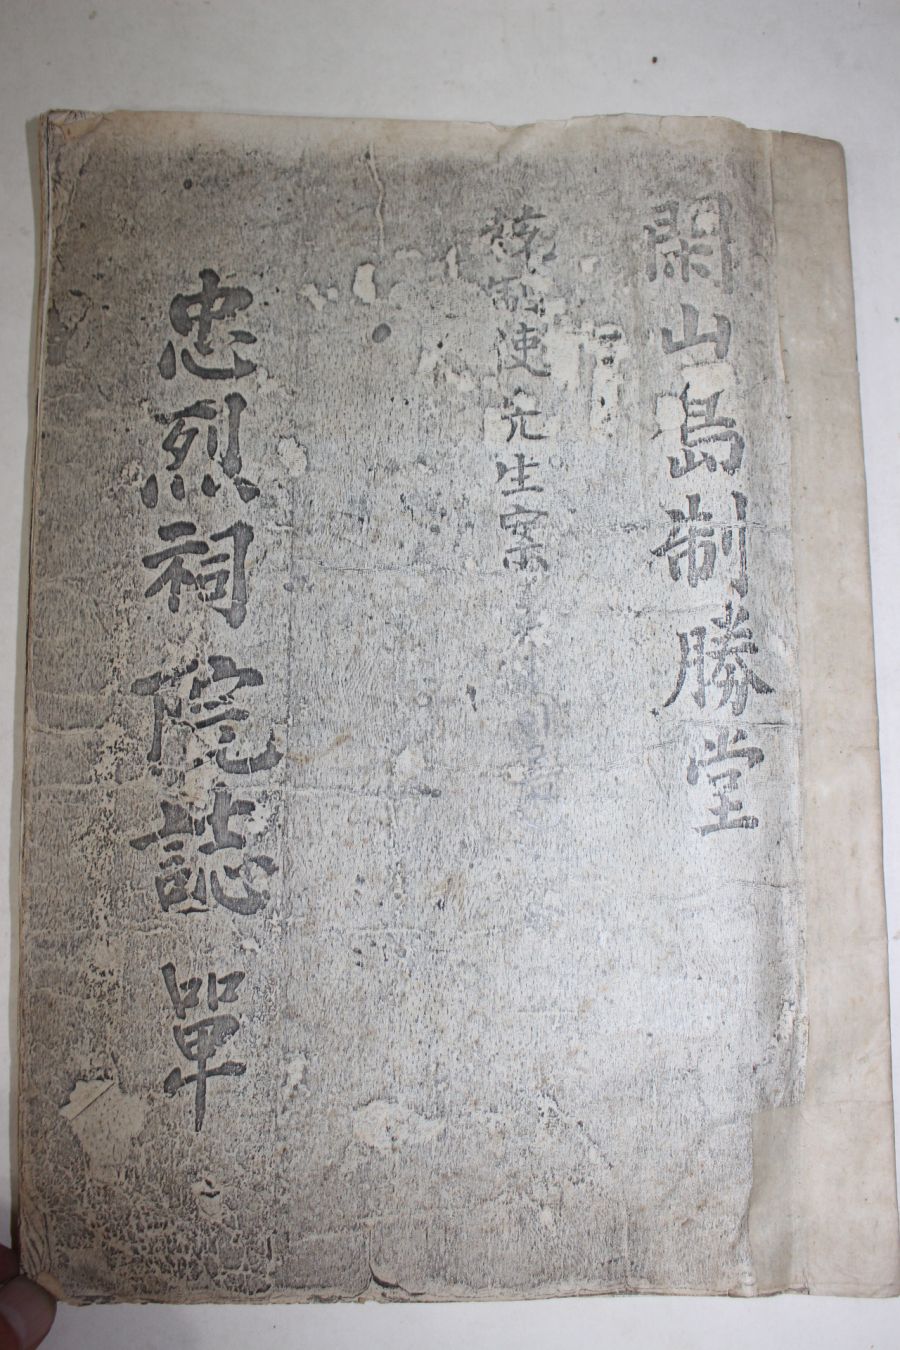 閑山島制勝堂
統制使先生案
忠烈祠院誌 單